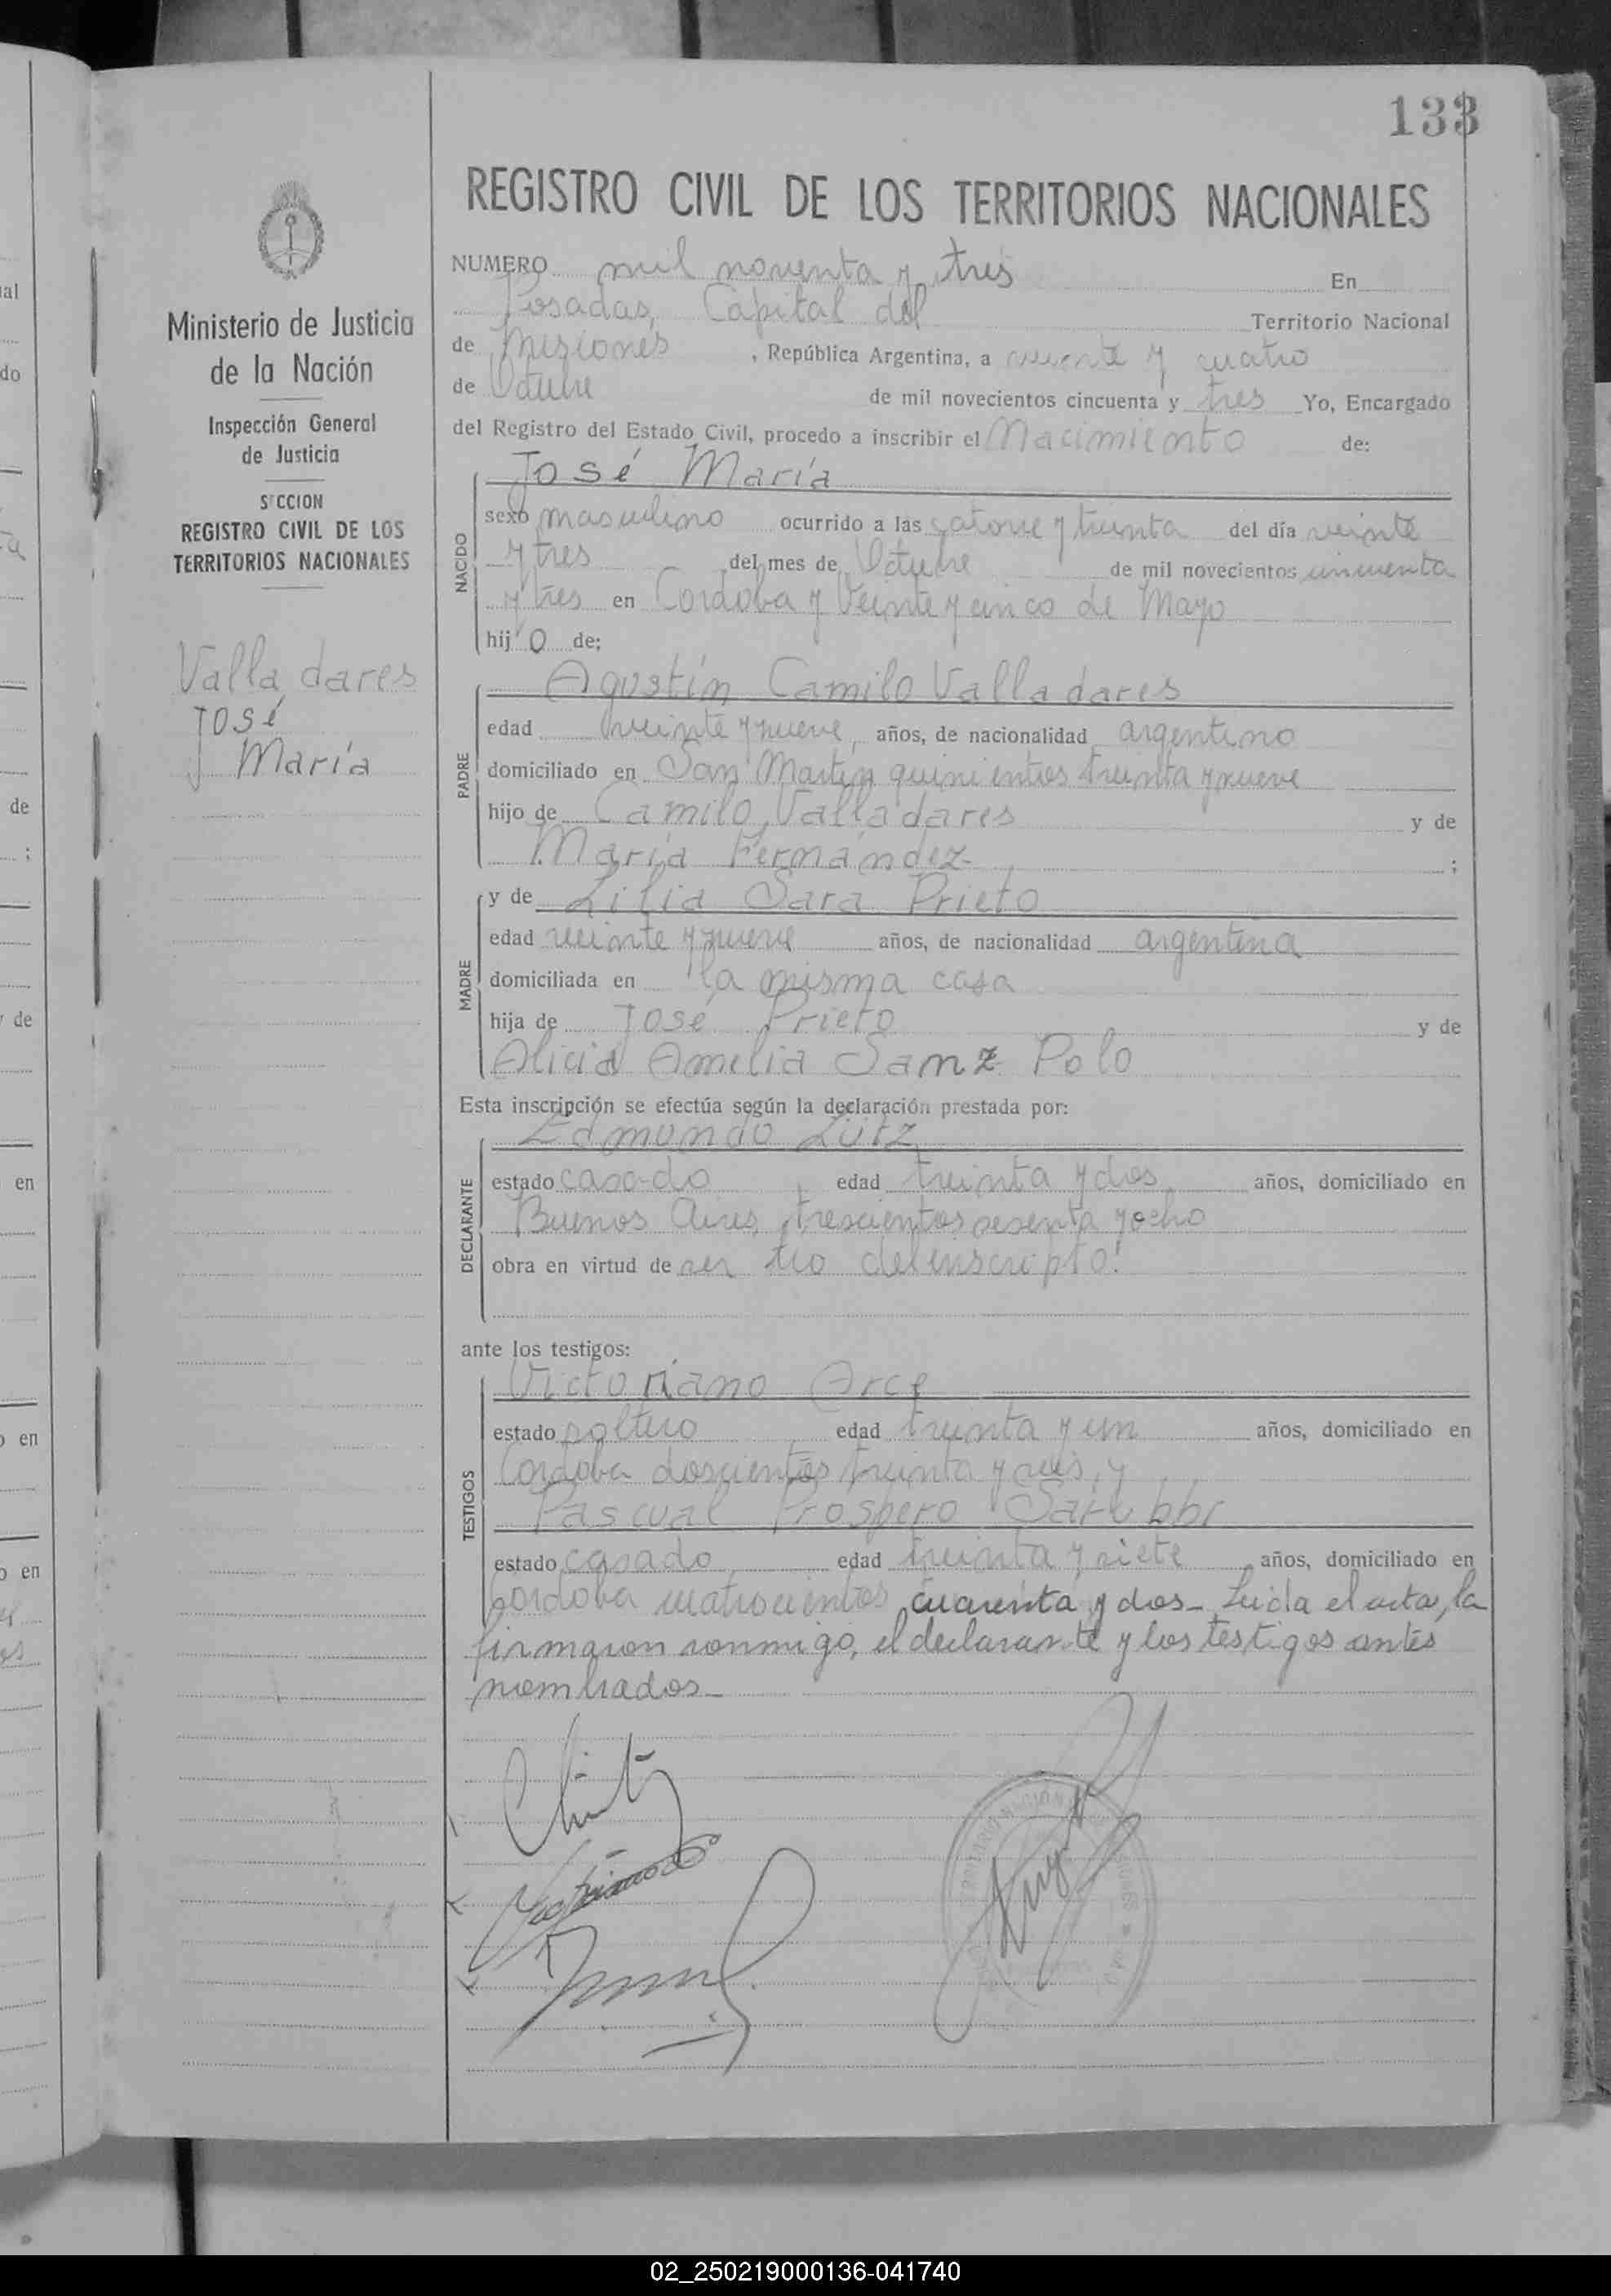 133
REGISTRO CIVIL DE LOS TERRITORIOS NACIONALES
Ministerio de Justicia
de la Nación
Inspección General
de Justicia
S CCION
REGISTRO CIVIL DE LOS
TERRITORIOS NACIONALES
Valladares
José
María
NUMERO mil noventa y tres En
Posadas, Capital del Territorio Nacional
de Misiones, República Argentina, a veinte y cuatro
de Octubre de mil novecientos cincuenta y tres Yo, Encargado
del Registro del Estado Civil, procedo a inscribir el Nacimiento de:
NACIDO
José María
sexo masculino ocurrido a las catorce y treinta del día veinte
y tres del mes de Octubre de mil novecientos cincuenta
y tres en Cordoba y Veinte y cinco de Mayo
hijo de:
PADRE
Agustín Camilo Valladares
edad veinte y nueve, años, de nacionalidad argentino
domiciliado en San Martin quinientos treinta y nueve
hijo de Camilo Valladares y de
María Fernández ;
MADRE
y de Lilia Sara Prieto
edad veinte y nueve años, de nacionalidad argentina
domiciliada en la misma casa
hija de José Prieto y de
Alicia Amelia Sanz Polo
Esta inscripción se efectúa según la declaración prestada por:
DECLARANTE
Edmundo Lutz
estado casado edad treinta y dos años, domiciliado en
Buenos Aires, trescientos sesenta y ocho
obra en virtud de ser tio del inscripto.
ante los testigos:
TESTIGOS
Victoriano Arce
estado soltero edad treinta y un años, domiciliado en
Cordoba doscientos treinta y seis, y
Pascual Prospero Sarubbi
estado casado edad treinta y siete años, domiciliado en
Cordoba cuatrocientos cuarenta y dos_ Leida el acta, la
firmaron conmigo, el declarante y los testigos antes
nombrados_
al
do
de
;
de
en
en
en
02_250219000136-041740